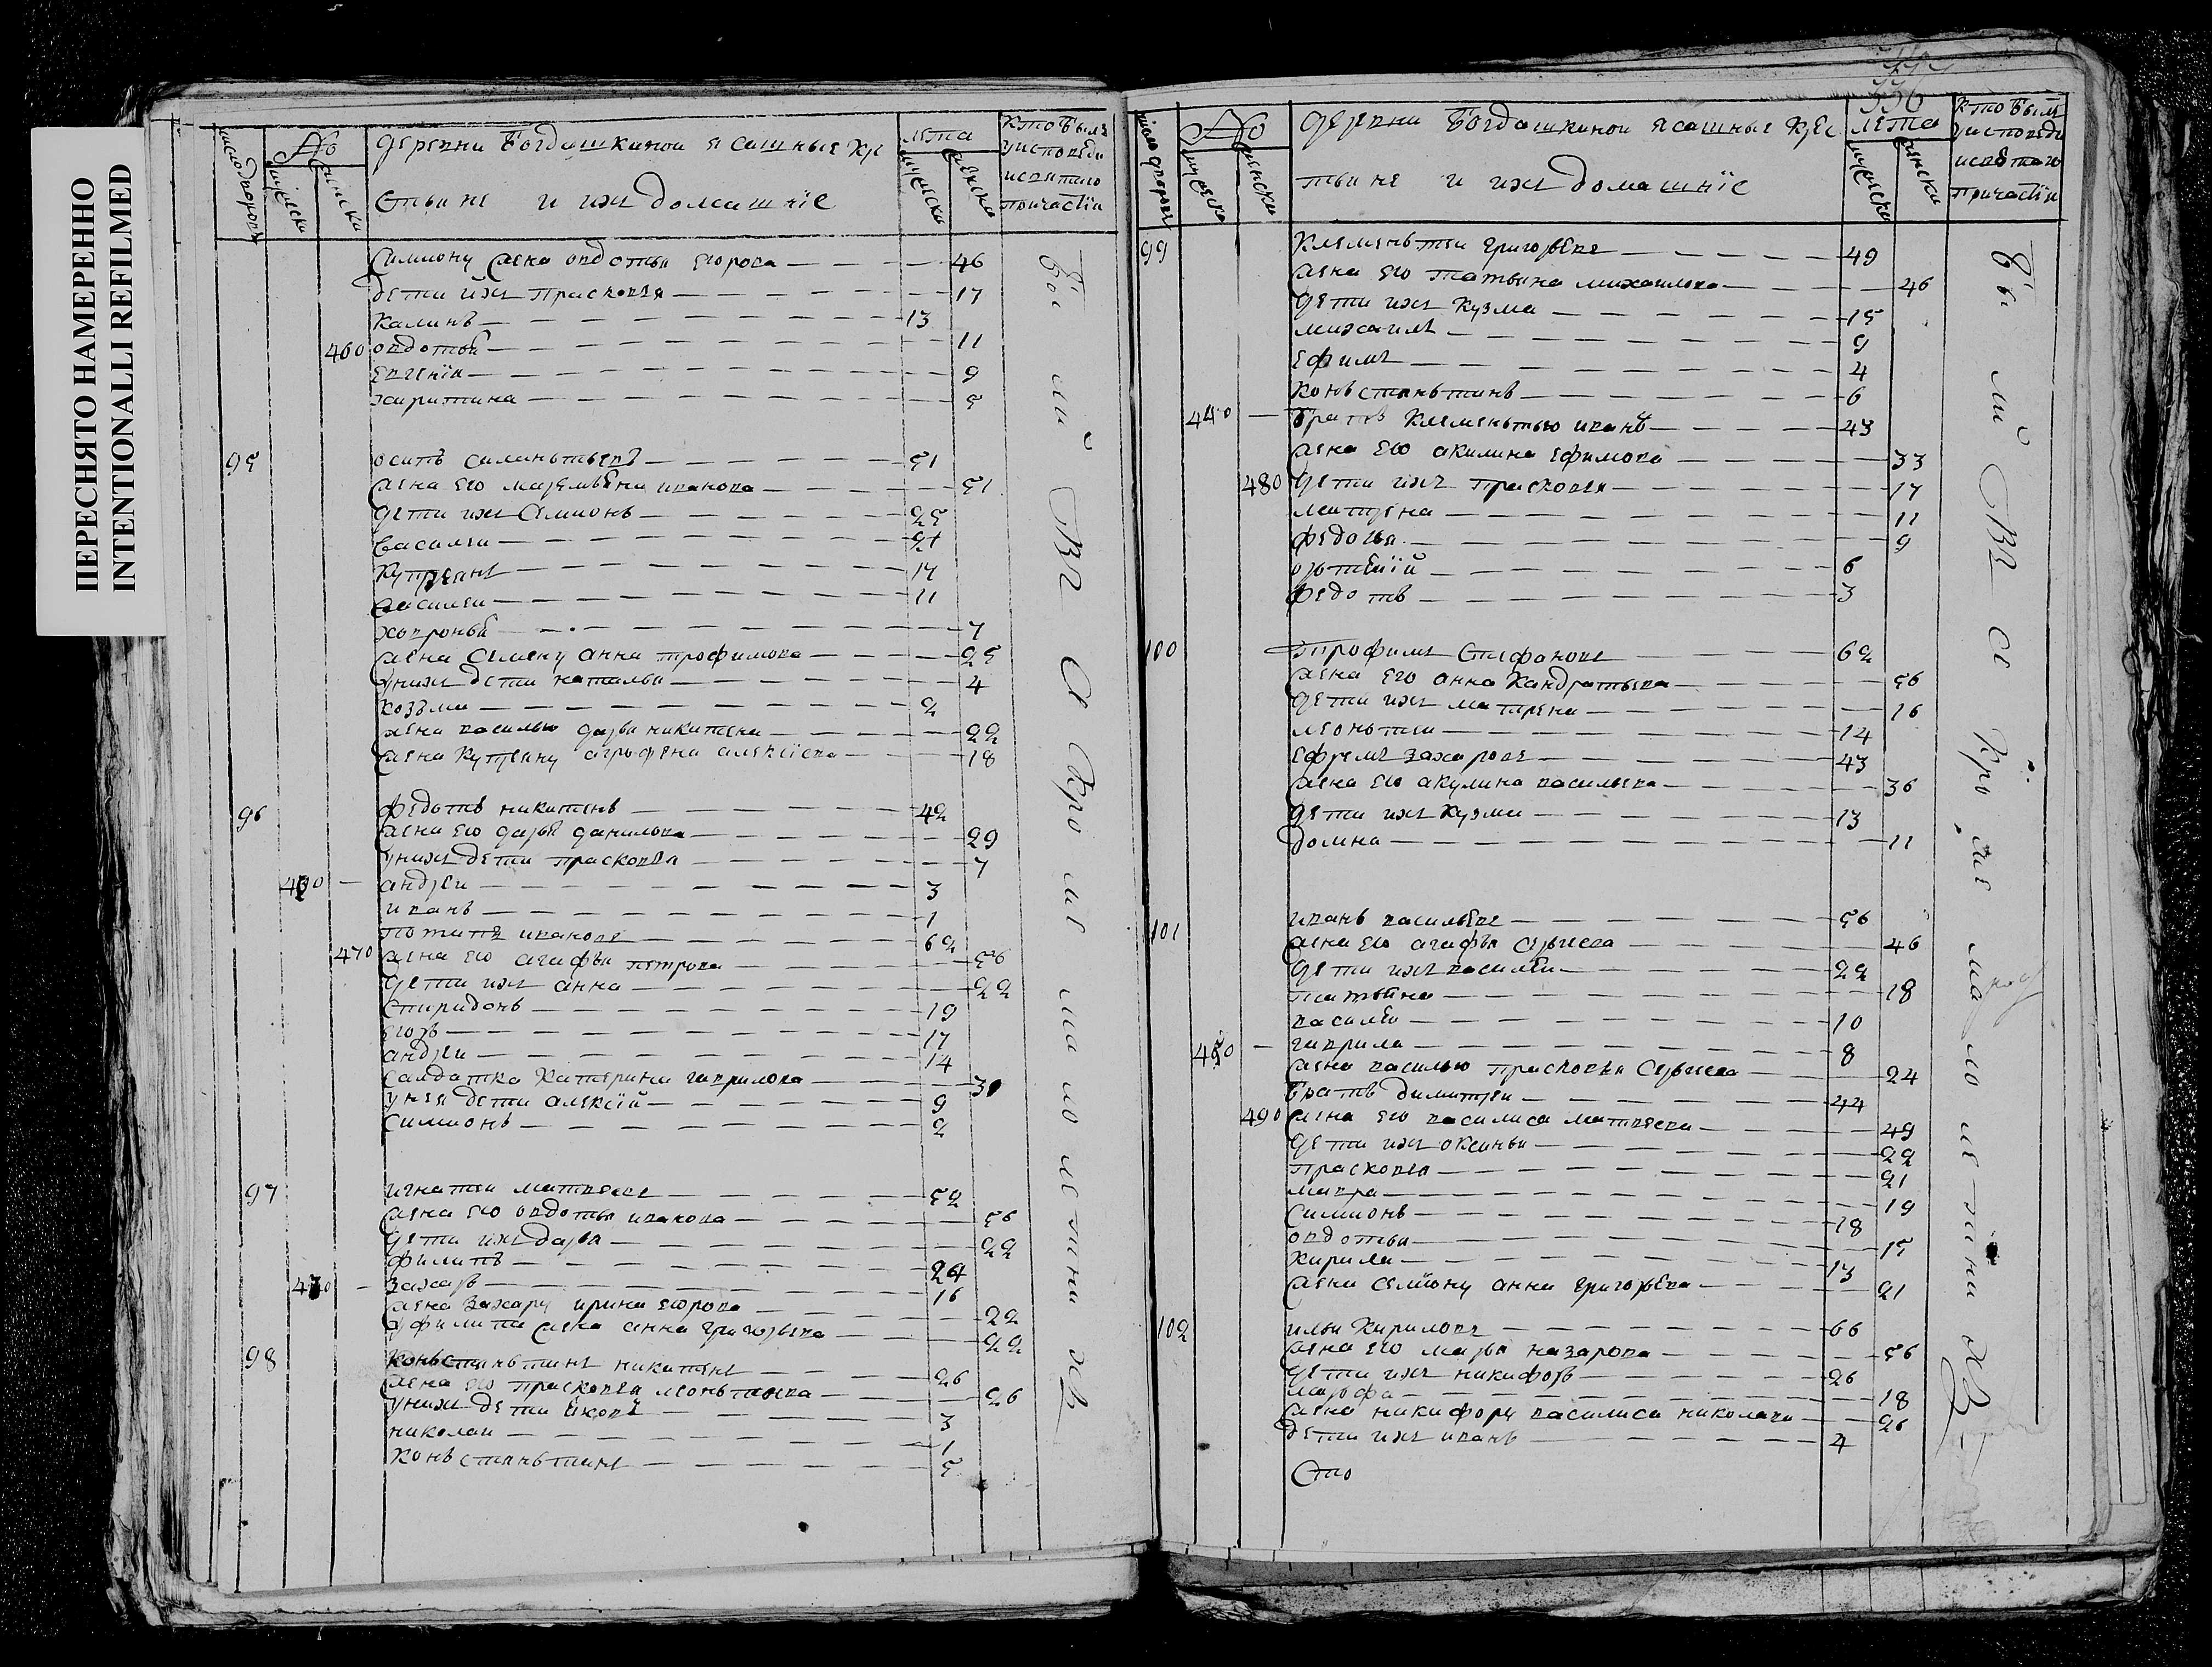 ПЕРЕСНЯТО НАМЕРЕННО
INTENTIONALLI REFILMED
число дворовъ
№
мужеска
женска
деревни Богдашкинои ясашные кре
стьяне и ихъ домашнïе
лета
мужеска
женска
кто былъ
у исповеди
и святаго
причастïи
Симиону жена овдотья егорова 46
дети ихъ Прасковья 17
Калинъ 13
460 овдотья 11
евгенïя 9
харитина 5
95 осипъ силиньтьевъ 51
жена его маремьяна иванова 51
дети ихъ Симионъ 25
василеи 21
Купреянъ 17
василеи 11
хавронья 7
жена Симену анна трофимова 25
у нихъ дети наталья 4
козма 2
жена василью дарья никитена 22
жена Купреяну агрофена алексïева 18
96 федотъ никитенъ 42
жена его дарья данилова 29
у нихъ дети прасковья 7
андреи 3
иванъ 1
Потапъ ивановъ 62
470 жена его агафья петрова 56
дети ихъ анна 22
Спиридонъ 19
егоръ 17
андреи 14
салдатка Катерина гаврилова 30
у нея дети алексïй 9
Симионъ 2
97 игнатеи матвеевъ 52
жена его овдотья иванова 56
дети ихъ дарья 22
филипъ 24
захаръ 16
жена захару ирина егорова 22
у филипа жена анна григорьева 22
98 Коньстаньтинъ никитенъ 26
жена его прасковья леоньтьева 26
у нихъ дети яковъ 3
николаи 1
Коньстаньтинъ 5
336
число дворовъ
№
мужеска
женска
деревни Богдашкинои ясашные крес
тьяне и ихъ домашнïе
лета
мужеска
женска
кто былъ
у исповеди
и святаго
причастïи
99 Клеменьтеи григорьевъ 49
жена его татьяна михаилова 46
дети ихъ Кузма 15
михаилъ 9
ефимъ 4
Коньстаньтинъ 6
440 братъ Клеменьтью иванъ 43
жена его акилина ефимова 33
480 дети ихъ прасковья 17
матрена 11
федосья 9
федотъ 3
100 трофимъ Стефановъ 62
жена его анна Кандратьева 56
дети ихъ матрена 16
леоньтеи 14
ефремъ захаровъ 43
жена его акулина васильева 36
дети ихъ Кузма 13
домна 11
101 иванъ васильевъ 56
жена его агафья Сергеева 46
дети ихъ василеи 22
татьяна 18
василеи 10
450 гаврила 8
жена василью прасковья Сергеева 24
братъ димитреи 44
490 жена его василиса матвеева 49
дети ихъ оксинья 22
прасковья 21
мавра 19
Симионъ 18
овдотья 15
Кирила 13
жена Семïону анна григорьева 21
102 илья Кириловъ 66
жена его марья назарова 56
дети ихъ никифоръ 26
марфа 18
жена никифору василиса николаева 26
дети ихъ иванъ 4
Сто